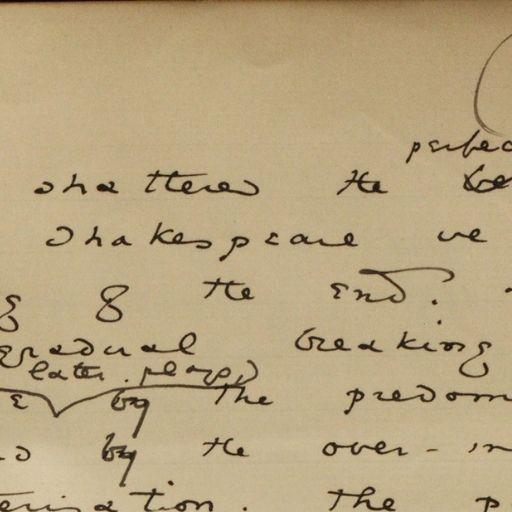 perfec
shattered the be
Shakespeare we
g of the End.
gradual breaking
later plays)
e by the predom
d by the over-in
terisation. The p